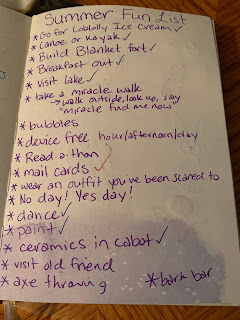 Summer Fun List
* Go for Loblolly Ice Cream ✓
* Canoe or Kayak ✓
* Build Blanket fort ✓
* Breakfast out ✓
* Visit lake ✓
* take a miracle walk
↳ walk outside, look up, say
"Miracle find me now"
* bubbles
* device free hour/afternoon/day
* Read-a-thon
* mail cards ✓
* wear an outfit you've been scared to
* No day! Yes day!
* dance ✓
* paint ✓
* ceramics in cabot ✓
* visit old friend
* axe throwing * bark bar